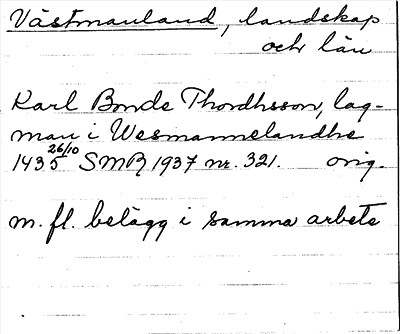 Västmanland, landskap
och län
Karl Bonde Thordhsson, lag-
man i Wesmannelandhe
1435 26/10 SMR 1937 nr. 321. orig.
m. fl. belägg i samma arbete